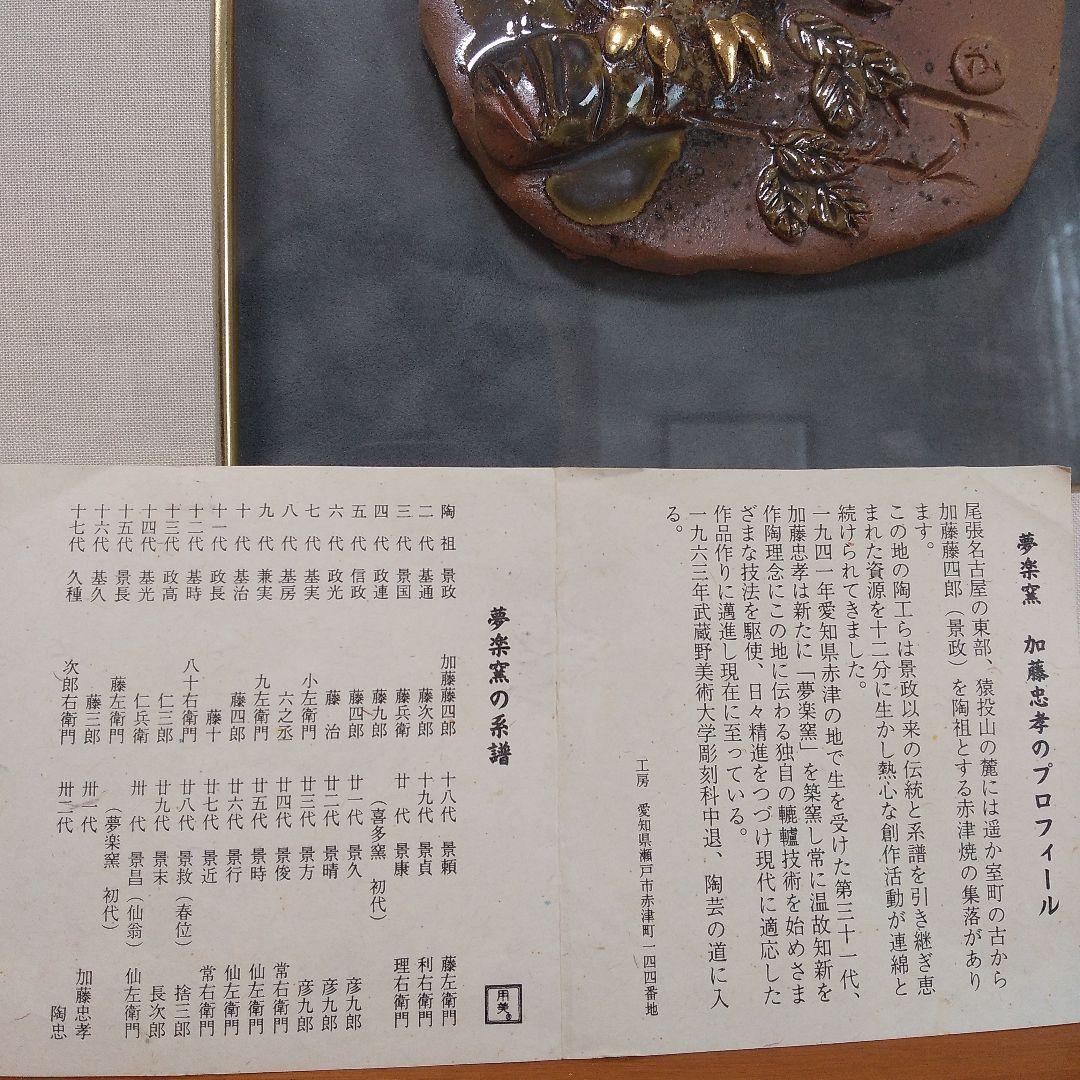 夢楽窯 加藤忠孝のプロフィール
尾張名古屋の東部、猿投山の麓には遥か室町の古から
加藤藤四郎（景政）を陶祖とする赤津焼の集落があり
ます。
この地の陶工らは景政以来の伝統と系譜を引き継ぎ恵
まれた資源を十二分に生かし熱心な創作活動が連綿と
続けられてきました。
一九四一年愛知県赤津の地で生を受けた第三十一代、
加藤忠孝は新たに「夢楽窯」を築窯し常に温故知新を
作陶理念にこの地に伝わる独自の轆轤技術を始めさま
ざまな技法を駆使、日々精進をつづけ現代に適応した
作品作りに邁進し現在に至っている。
一九六三年武蔵野美術大学彫刻科中退、陶芸の道に入
る。
工房 愛知県瀬戸市赤津町一四四番地
夢楽窯の系譜
用美
陶祖 景政 加藤藤四郎
二代 基通 藤次郎
三代 景国 藤兵衛
四代 政連 藤九郎
五代 信政 藤四郎
六代 政光 藤治
七代 基実 小左衛門
八代 基房 六之丞
九代 兼実 九左衛門
十代 基治 藤四郎
十一代 政長 藤十
十二代 基時 八十右衛門
十三代 政高 仁三郎
十四代 基光 仁兵衛
十五代 景長 藤左衛門
十六代 基久 藤三郎
十七代 久種 次郎右衛門
十八代 景頼 藤左衛門
十九代 景貞 利右衛門
廿代 景康 理右衛門
（喜多窯 初代）
廿一代 景久 彦九郎
廿二代 景晴 彦九郎
廿三代 景方 彦九郎
廿四代 景俊 常右衛門
廿五代 景時 仙左衛門
廿六代 景行 仙左衛門
廿七代 景近 常右衛門
廿八代 景救（春位） 捨三郎
廿九代 景末 長次郎
卅代 景昌（仙翁） 仙左衛門
（夢楽窯 初代）
卅一代 加藤忠孝
卅二代 陶忠